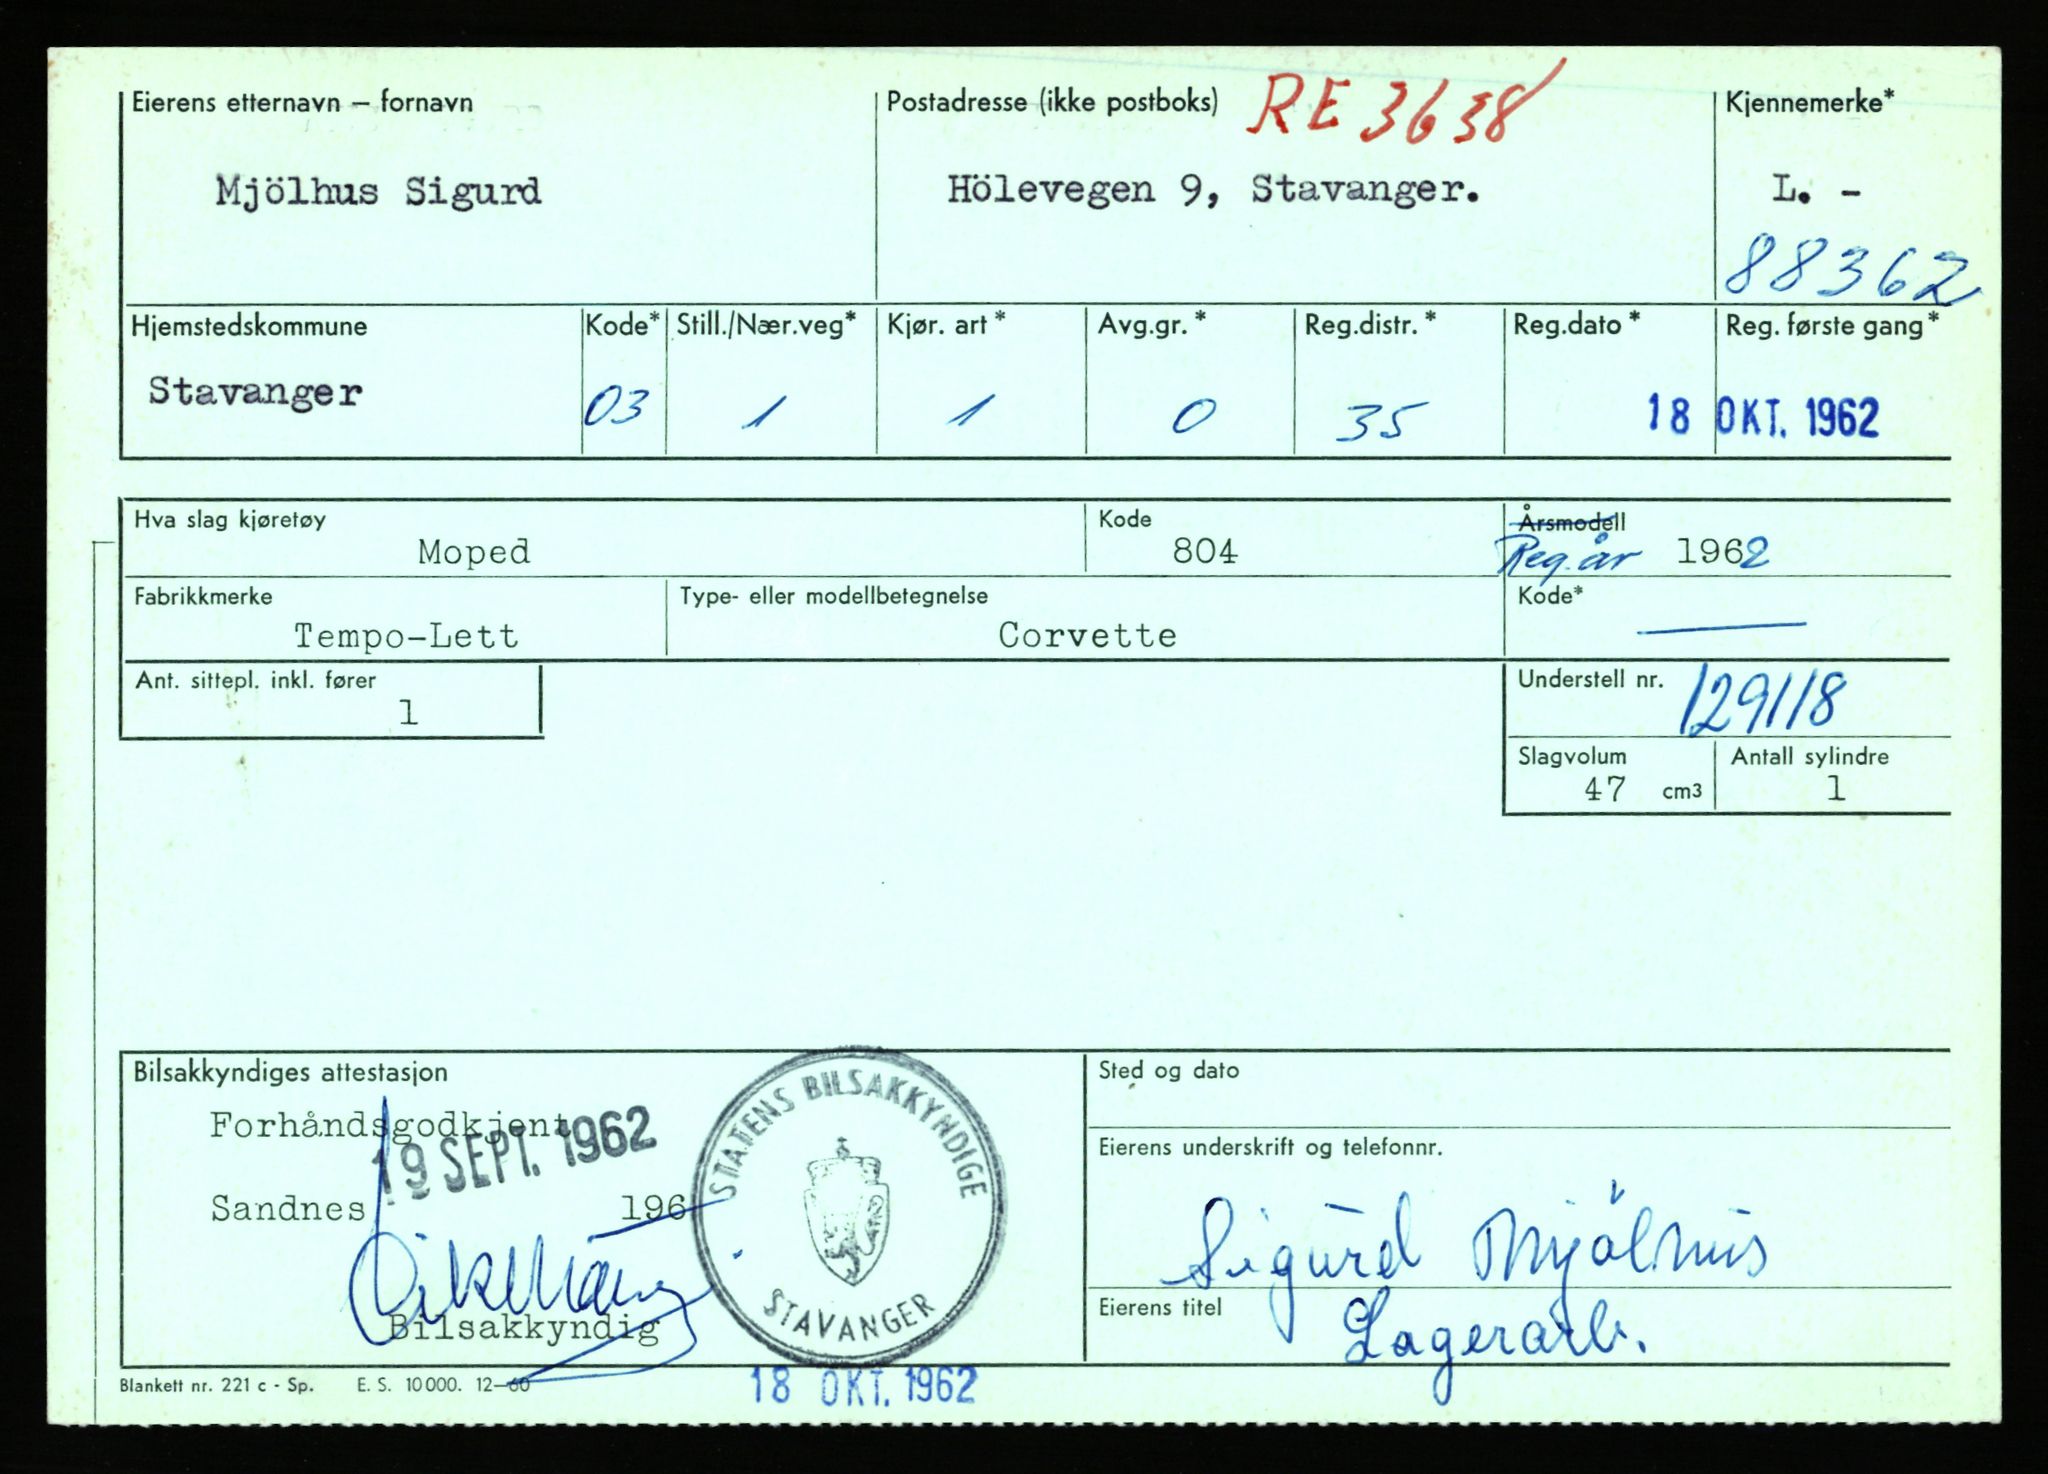 Eierens etternavn – fornavn
Postadresse (ikke postboks)
RE 3638
Kjennemerke*
Mjölhus Sigurd
Hölevegen 9, Stavanger.
L. -
88362
Hjemstedskommune
Kode*
Still./Nær.veg*
Kjør. art *
Avg.gr. *
Reg.distr. *
Reg.dato *
Reg. første gang*
Stavanger
03
1
1
0
35
18 OKT. 1962
Hva slag kjøretøy
Moped
Kode
804
Årsmodell
Reg. år 1962
Fabrikkmerke
Tempo-Lett
Type- eller modellbetegnelse
Corvette
Kode*
Ant. sittepl. inkl. fører
1
Understell nr.
129118
Slagvolum
47 cm3
Antall sylindre
1
Bilsakkyndiges attestasjon
Forhåndsgodkjent
19 SEPT. 1962
Sandnes 196
Bilsakkyndig
STATENS BILSAKKYNDIGE
STAVANGER
18 OKT. 1962
Sted og dato
Eierens underskrift og telefonnr.
Sigurd Mjölhus
Eierens titel
Lagerarb.
Blankett nr. 221 c - Sp. E. S. 10 000. 12–60